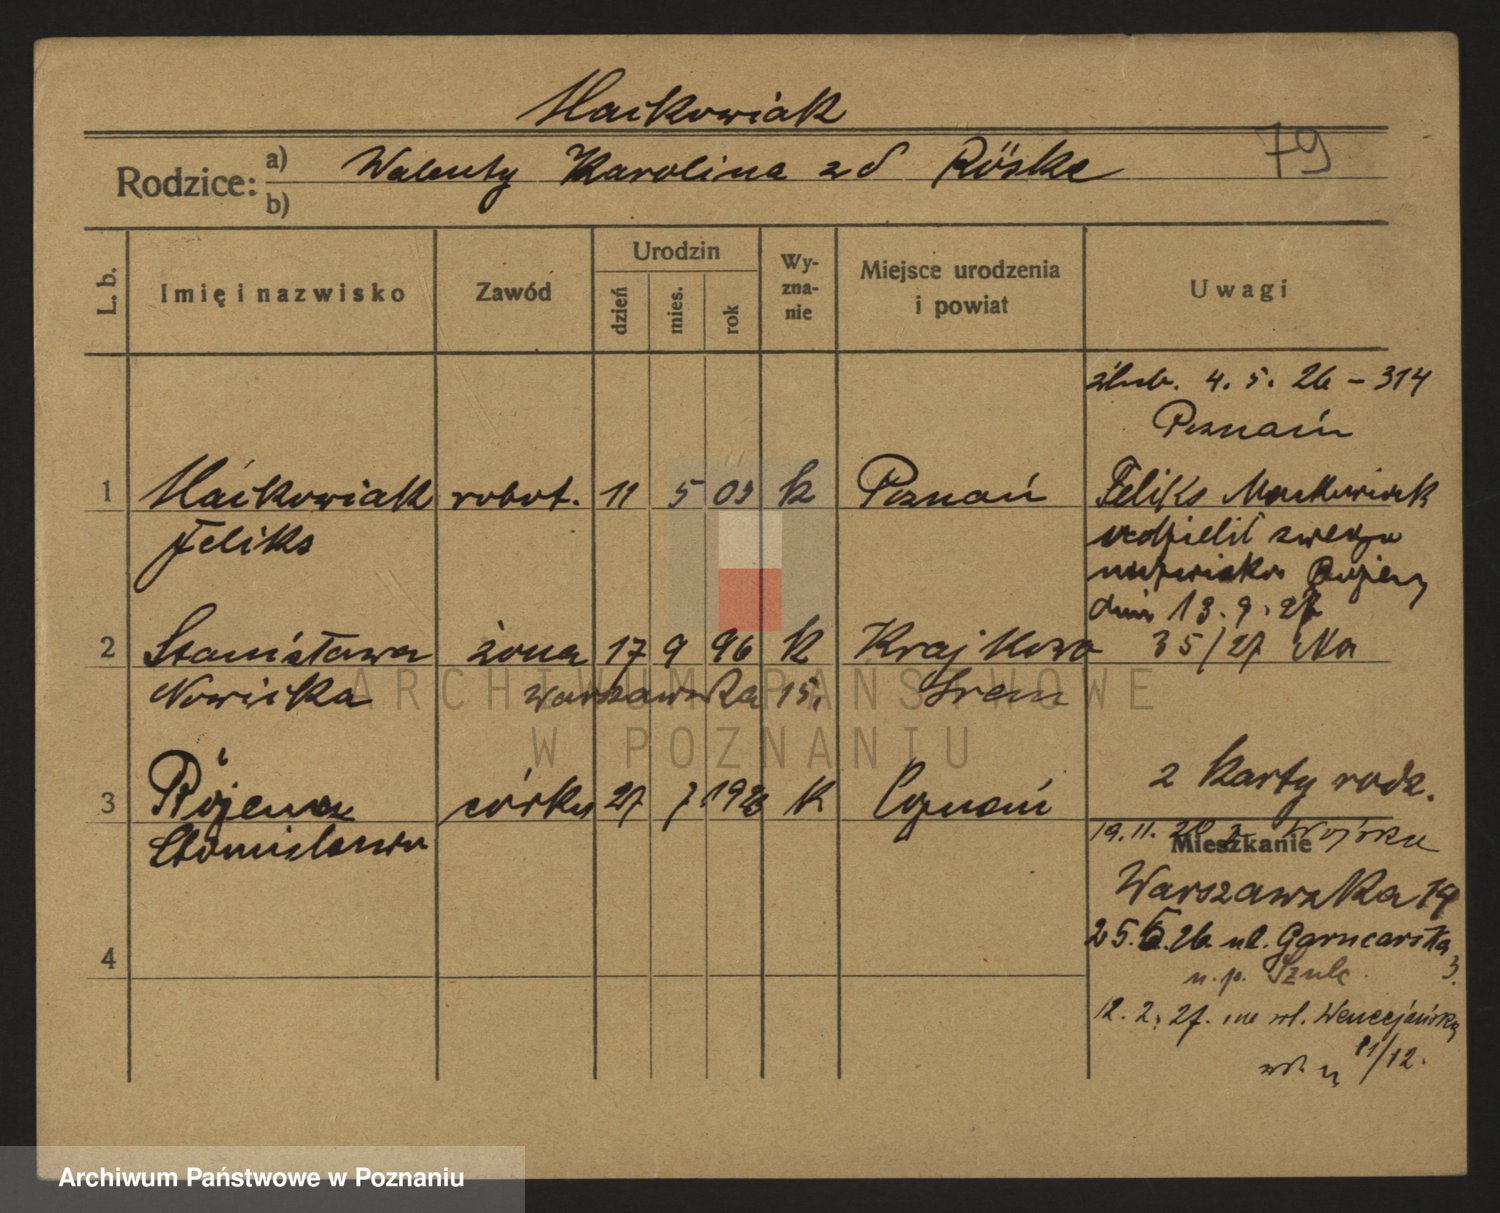 Maćkowiak
79
Rodzice: a) Walenty Karolina zd Röske
b)
L. b.
Imię i nazwisko
Zawód
Urodzin
dzień
mies.
rok
Wy-
zna-
nie
Miejsce urodzenia
i powiat
Uwagi
ślub. 4. 5. 26 – 314
Poznań
1 Maćkowiak robot. 11 5 03 k Poznań
Feliks
Feliks Maćkowiak
udzielił swego
nazwiska
dnia 13. 9. 27
35/27
2 Stanisława żona 17 9 96 k Krajkowo
Nowicka Warszawska 15. Śrem
3 córka 27 7 1923 k Poznań
Stanisława
2 karty rodz.
19. 11. 20 z Wojska
Mieszkanie
Warszawska 19
25. 5. 26. ul. Garncarska 3.
u. p. Szulc
12. 2. 27. na ul. Wenecjańską
11/12.
4
ARCHIWUM PAŃSTWOWE
W POZNANIU
Archiwum Państwowe w Poznaniu